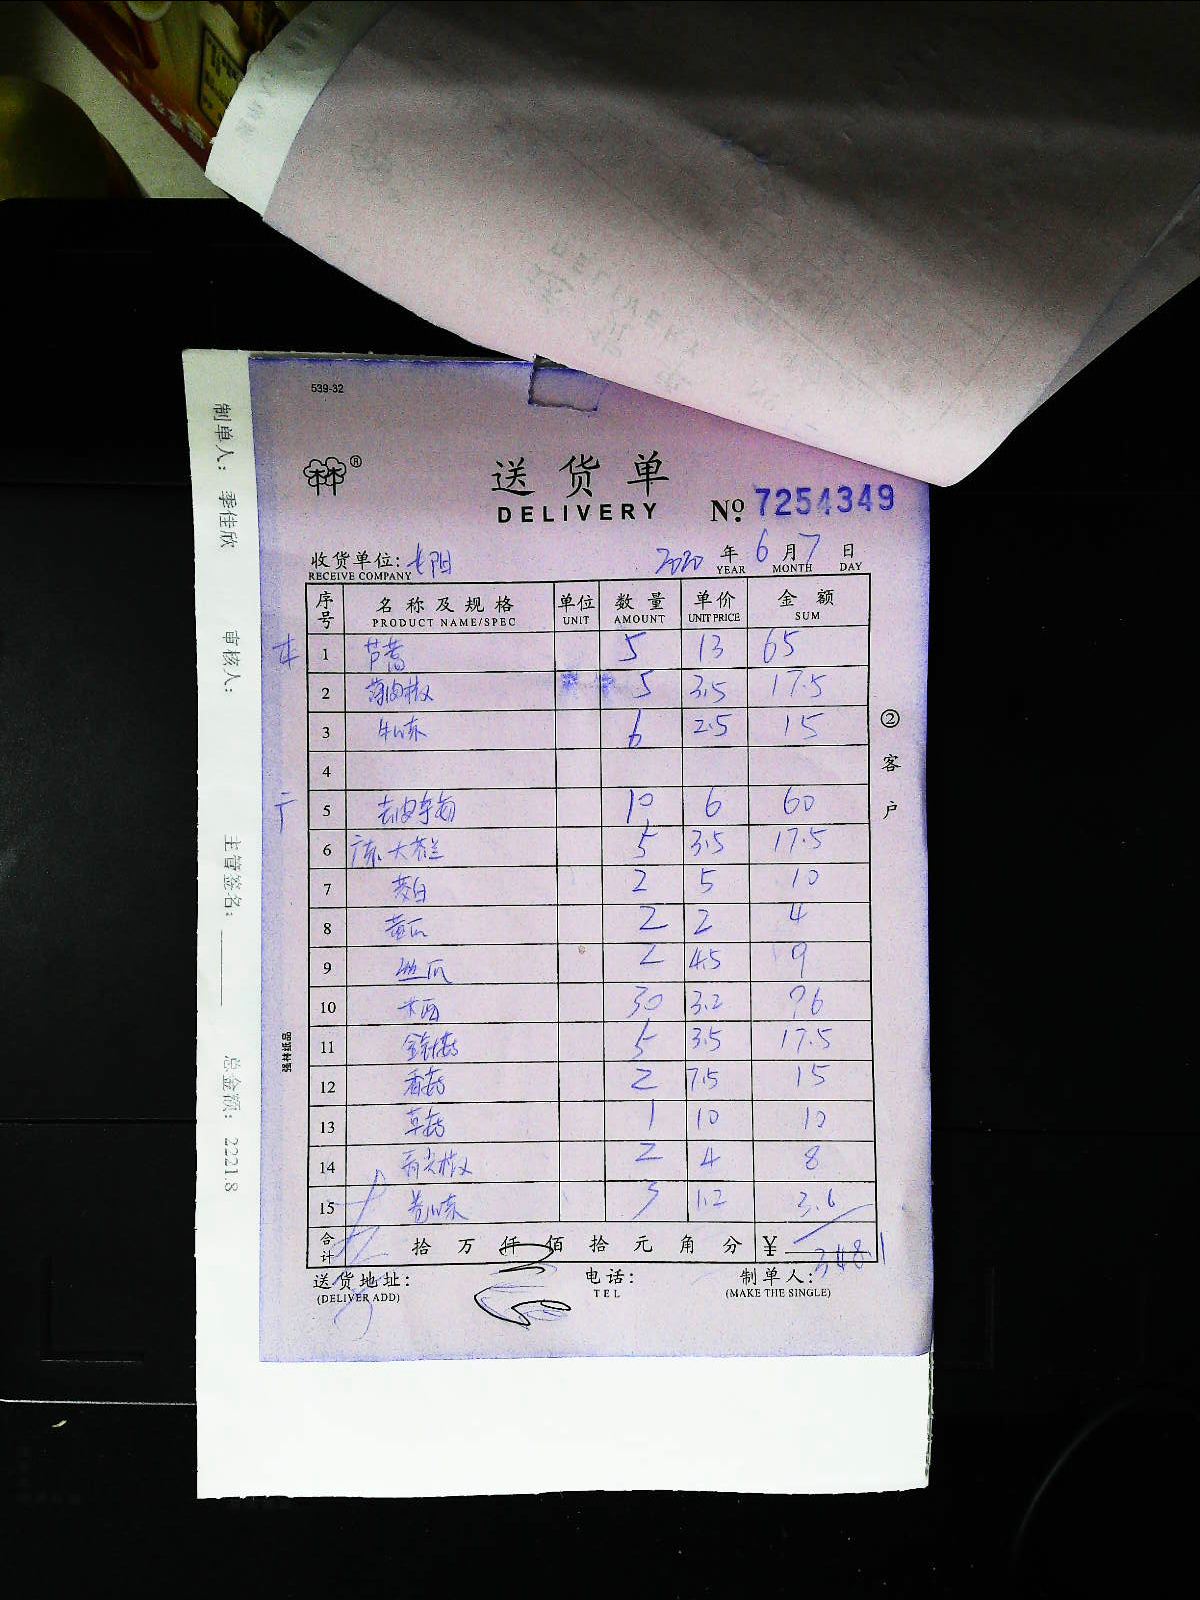 539-32
林林®
送货单
DELIVERY No. 7254349
收货单位: 七阳 2020 年 6 月 7 日
RECEIVE COMPANY YEAR MONTH DAY
序号 名称及规格 单位 数量 单价 金额
PRODUCT NAME/SPEC UNIT AMOUNT UNIT PRICE SUM
1 芦蒿 5 13 65
2 薄肉椒 5 3.5 17.5
3 牛心菜 6 2.5 15
4
5 去皮 10 6 60
6 大 5 3.5 17.5
7 茭白 2 5 10
8 黄瓜 2 2 4
9 丝瓜 2 4.5 9
10 30 3.2 96
11 金针菇 5 3.5 17.5
12 香菇 2 7.5 15
13 草菇 1 10 10
14 青尖椒 2 4 8
15 3 1.2 3.6
合计 拾 万 仟 佰 拾 元 角 分 ¥ 348.1
送货地址: 电话: 制单人:
(DELIVER ADD) TEL (MAKE THE SINGLE)
②客户
强林纸品
制单人: 季佳欣 审核人: 主管签名: 总金额: 2221.8